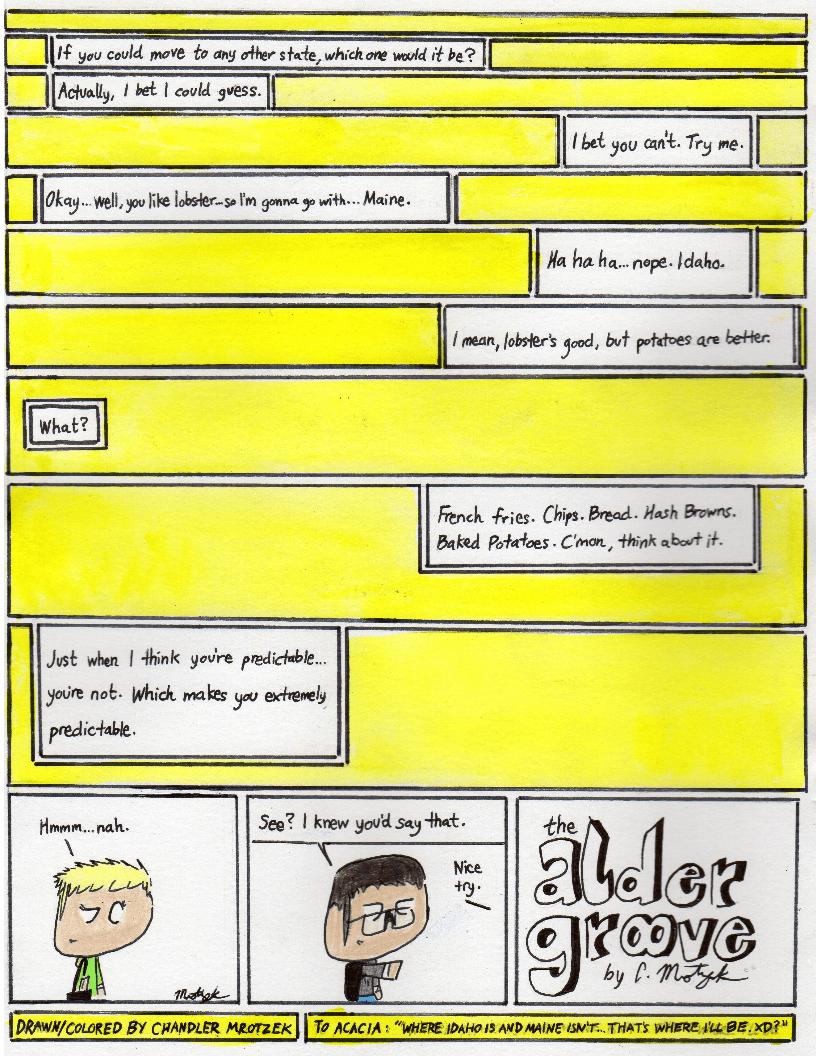 If you could move to any other state, which one would it be?
Actually, I bet I could guess.
I bet you can't. Try me.
Okay... well, you like lobster...so I'm gonna go with... Maine.
Ha ha ha... nope. Idaho.
I mean, lobster's good, but potatoes are better.
What?
French fries. Chips. Bread. Hash Browns.
Baked Potatoes. C'mon, think about it.
Just when I think you're predictable...
you're not. Which makes you extremely
predictable.
Hmmm...nah.
Motzek
See? I knew you'd say that.
Nice
try.
the
alder
groove
by C. Motzek
DRAWN/COLORED BY CHANDLER MROTZEK
TO ACACIA: "WHERE IDAHO IS AND MAINE ISN'T... THAT'S WHERE I'LL BE. XD?"